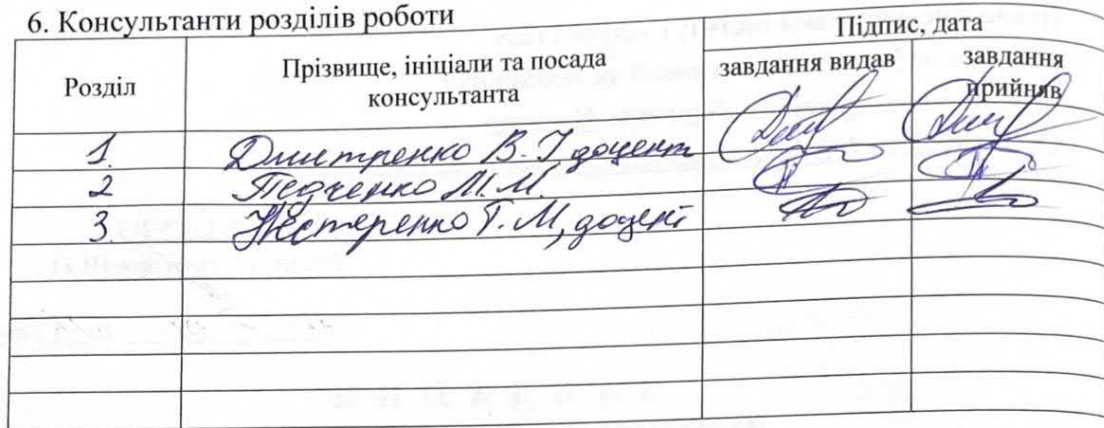 6. Консультанти розділів роботи
Розділ
Прізвище, ініціали та посада
консультанта
Підпис, дата
завдання видав
завдання
прийняв
1. Дмитренко В. І, доцент
2 Педченко М. М.
3. Нестеренко Т. М, доцент